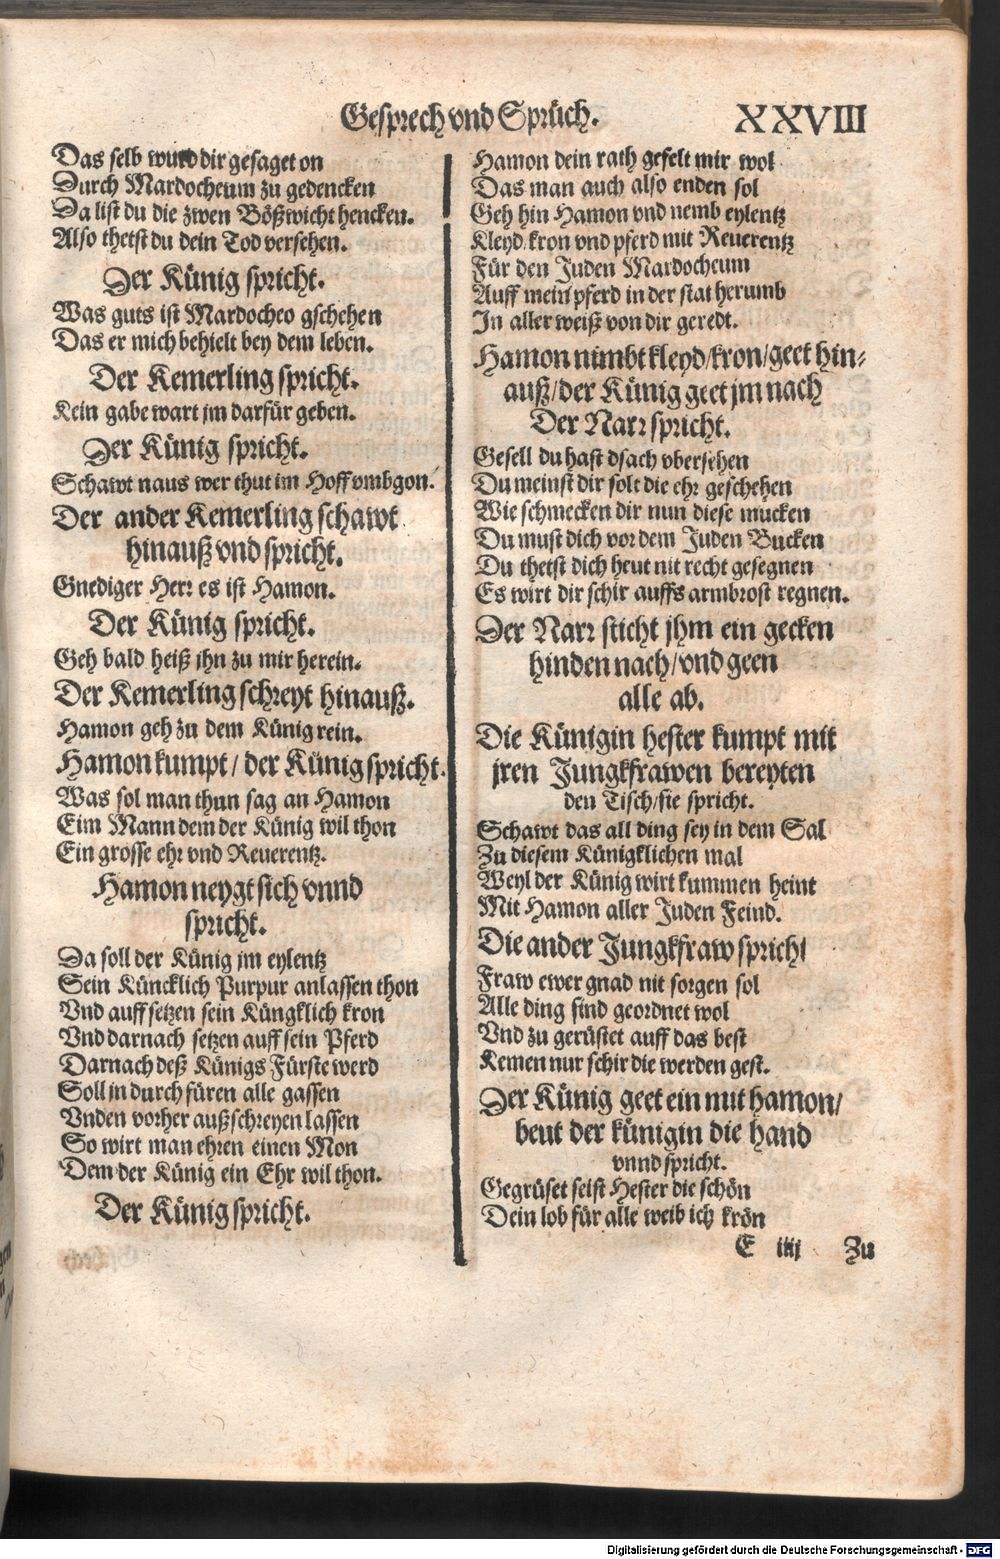 Gesprech vnd Sprüch. XXVIII
Das selb wurd dir gesaget on
Durch Mardocheum zu gedencken
Da list du die zwen Bößwicht hencken.
Also thetst du dein Tod versehen.
Der Künig spricht.
Was guts ist Mardocheo gschehen
Das er mich behielt bey dem leben.
Der Kemerling spricht.
Kein gabe wart jm darfür geben.
Der Künig spricht.
Schawt naus wer thut im Hoff vmbgon.
Der ander Kemerling schawt
hinauß vnd spricht.
Gnediger Herr es ist Hamon.
Der Künig spricht.
Geh bald heiß jhn zu mir herein.
Der Kemerling schreyt hinauß.
Hamon geh zu dem Künig rein.
Hamon kumpt / der Künig spricht.
Was sol man thun sag an Hamon
Eim Mann dem der Künig wil thon
Ein grosse ehr vnd Reuerentz.
Hamon neygt sich vnnd
spricht.
Da soll der Künig jm eylentz
Sein Küncklich Purpur anlassen thon
Vnd auff setzen sein Küngklich kron
Vnd darnach setzen auff sein Pferd
Darnach deß Künigs Fürste werd
Soll in durch füren alle gassen
Vnden vorher außschreyen lassen
So wirt man ehren einen Mon
Dem der Künig ein Ehr wil thon.
Der Künig spricht.
Hamon dein rath gefelt mir wol
Das man auch also enden sol
Geh hin Hamon vnd nemb eylentz
Kleyd / kron vnd pferd mit Reuerentz
Für den Juden Mardocheum
Auff mein pferd in der stat herumb
In aller weiß von dir geredt.
Hamon nimbt kleyd / kron / geet hin⸗
auß / der Künig geet jm nach
Der Narr spricht.
Gesell du hast dsach vbersehen
Du meinst dir solt die ehr geschehen
Wie schmecken dir nun diese mucken
Du must dich vor dem Juden Bucken
Du thetst dich heut nit recht gesegnen
Es wirt dir schir auffs armbrost regnen.
Der Narr sticht jhm ein gecken
hinden nach / vnd geen
alle ab.
Die Künigin hester kumpt mit
jren Jungkfrawen bereyten
den Tisch / sie spricht.
Schawt das all ding sey in dem Sal
Zu diesem Künigklichen mal
Weyl der Künig wirt kummen heint
Mit Hamon aller Juden Feind.
Die ander Jungkfraw spricht
Fraw ewer gnad nit sorgen sol
Alle ding sind geordnet wol
Vnd zu gerüstet auff das best
Kemen nur schir die werden gest.
Der Künig geet ein mit hamon /
beut der künigin die hand
vnnd spricht.
Gegrüset seist Hester die schön
Dein lob für alle weib ich krön
E iiij Zu
Digitalisierung gefördert durch die Deutsche Forschungsgemeinschaft - DFG